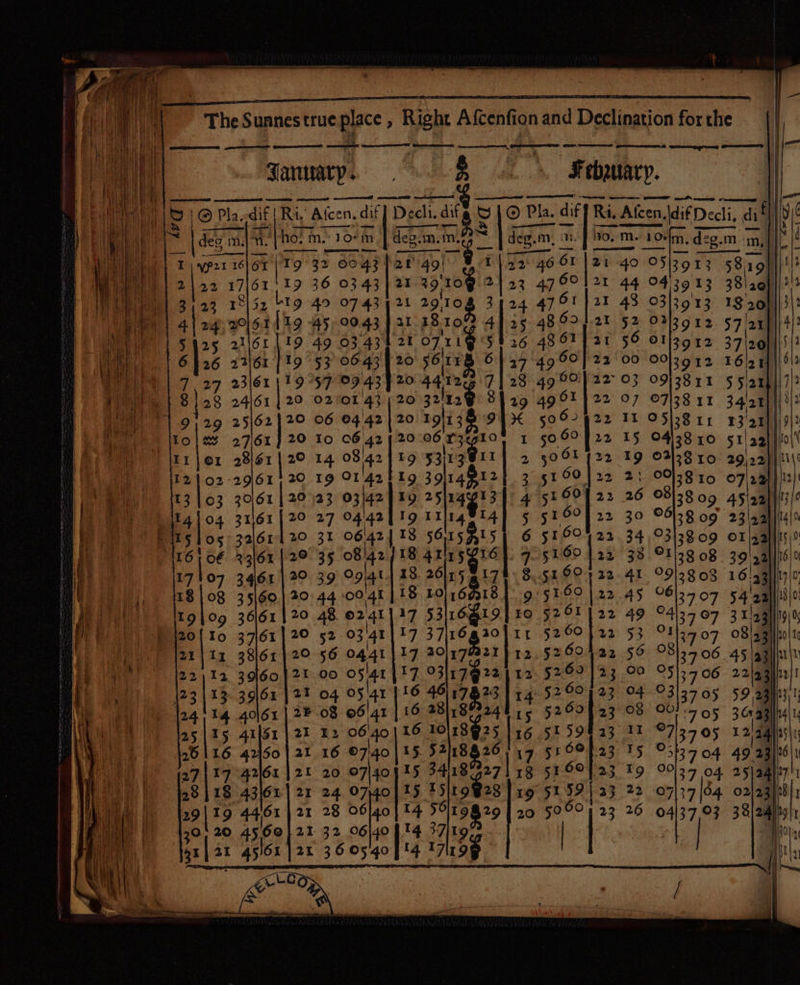 The Sunnes true place, Right Ascension and Declination for the
January. February.
☉ Pla. dif Ri. Ascen. dif Decli. dif ☉ Pla. dif Ri. Ascen. dif Decli. dif
deg m. m. ho. m. 10m deg. m. m. deg. m. m. ho. m. 10m. deg. m m.
1 ♑21 16 61 19 32 00 43 21 49 1 22 46 61 21 40 05 39 13 58 19
2 22 17 61 19 36 03 43 21 39 10 2 23 47 60 21 44 04 39 13 38 20
3 23 18 52 19 40 07 43 21 29 10 3 24 47 61 21 48 03 39 13 18 20
4 24 20 61 19 45 00 43 21 18 10 4 25 48 62 21 52 02 39 12 57 21
5 25 21 61 19 49 03 43 21 07 11 5 26 48 61 21 56 01 39 12 37 20
6 26 22 61 19 53 06 43 20 56 11 6 27 49 60 22 00 00 39 12 16 21
7 27 23 61 19 57 09 43 20 44 12 7 28 49 60 22 03 09 38 11 55 21
8 28 24 61 20 02 01 43 20 32 12 8 29 49 61 22 07 07 38 11 34 21
9 29 25 62 20 06 04 42 20 19 13 9 ♓ 50 62 22 11 05 38 11 13 21
10 ♒ 27 61 20 10 06 42 20 06 13 10 1 50 60 22 15 04 38 10 51 22
11 01 28 61 20 14 08 42 19 53 13 11 2 50 61 22 19 02 38 10 29 22
12 02 29 61 20 19 01 42 19 39 14 12 3 51 60 22 2: 00 38 10 07 22
13 03 30 61 20 23 03 42 19 25 14 13 4 51 60 22 26 08 38 09 45 22
14 04 31 61 20 27 04 42 19 11 14 14 5 51 60 22 30 06 38 09 23 22
15 05 32 61 20 31 06 42 18 56 15 15 6 51 60 22 34 03 38 09 01 22
16 06 33 61 20 35 08 42 18 41 15 16 7 51 60 22 38 01 38 08 39 22
17 07 34 61 20 39 09 41 18 26 15 17 8 51 60 22 41 09 38 08 16 23
18 08 35 60 20 44 00 41 18 10 16 18 9 51 60 22 45 06 37 07 54 22
19 09 36 61 20 48 02 41 17 53 16 19 10 52 61 22 49 04 37 07 31 23
20 10 37 61 20 52 03 41 17 37 16 20 11 52 60 22 53 01 37 07 08 23
21 11 38 61 20 56 04 41 17 20 17 21 12 52 60 22 56 08 37 06 45 23
22 12 39 60 21 00 05 41 17 03 17 22 13 52 60 23 00 05 37 06 22 23
23 13 39 61 21 04 05 41 16 46 17 23 14 52 60 23 04 03 37 05 59 23
24 14 40 61 21 08 06 41 16 28 18 24 15 52 62 23 08 00 37 05 36 23
25 15 41 51 21 12 06 40 16 10 18 25 16 51 59 23 11 07 37 05 12 24
26 16 42 60 21 16 07 40 15 52 18 26 17 51 60 23 15 03 37 04 49 23
27 17 42 61 21 20 07 40 15 34 18 27 18 51 60 23 19 00 37 04 25 24
28 18 43 61 21 24 07 40 15 15 19 28 19 51 59 23 22 07 37 04 02 23
29 19 44 61 21 28 06 40 14 56 19 29 20 50 60 23 26 04 37 03 38 24
30 20 45 60 21 32 06 40 14 37 19
31 21 45 61 21 36 05 40 14 17 19
WELLCOME